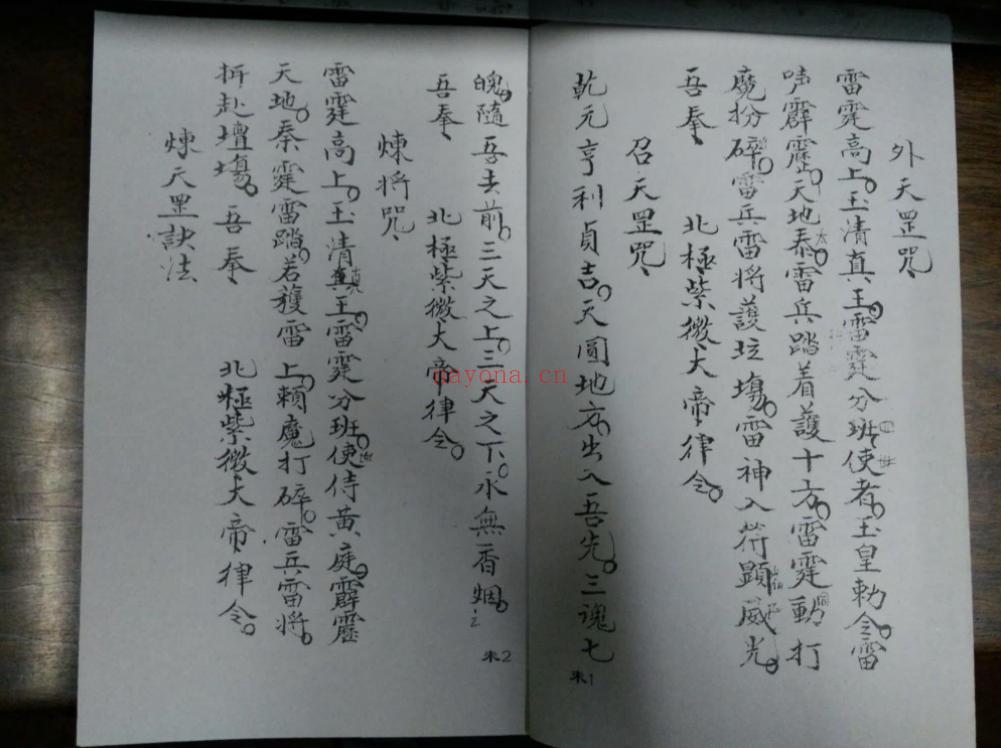 外天罡咒
雷霆高上。玉清真王。雷霆分班。使者。玉皇勅令。雷
声霹靂。天地泰。雷兵踏着護十方。雷霆動打
魔扮碎。雷兵雷将護坛場。雷神入符顕威光。
吾奉 北極紫微大帝律令。
召天罡咒
乾元亨利貞吉。天圓地方。出入吾先。三魂七
朱1
魄。隨吾去前。三天之上。三天之下。水無香烟。之
吾奉 北極紫微大帝律令。
煉将咒
雷霆高上。玉清真王。雷霆分班。使侍黄庭。霹靂
天地。泰霆雷踏。若護雷上。賴魔打碎。雷兵雷将。
拆赴壇場。吾奉 北極紫微大帝律令。
煉天罡訣法
朱2
nayona.cn